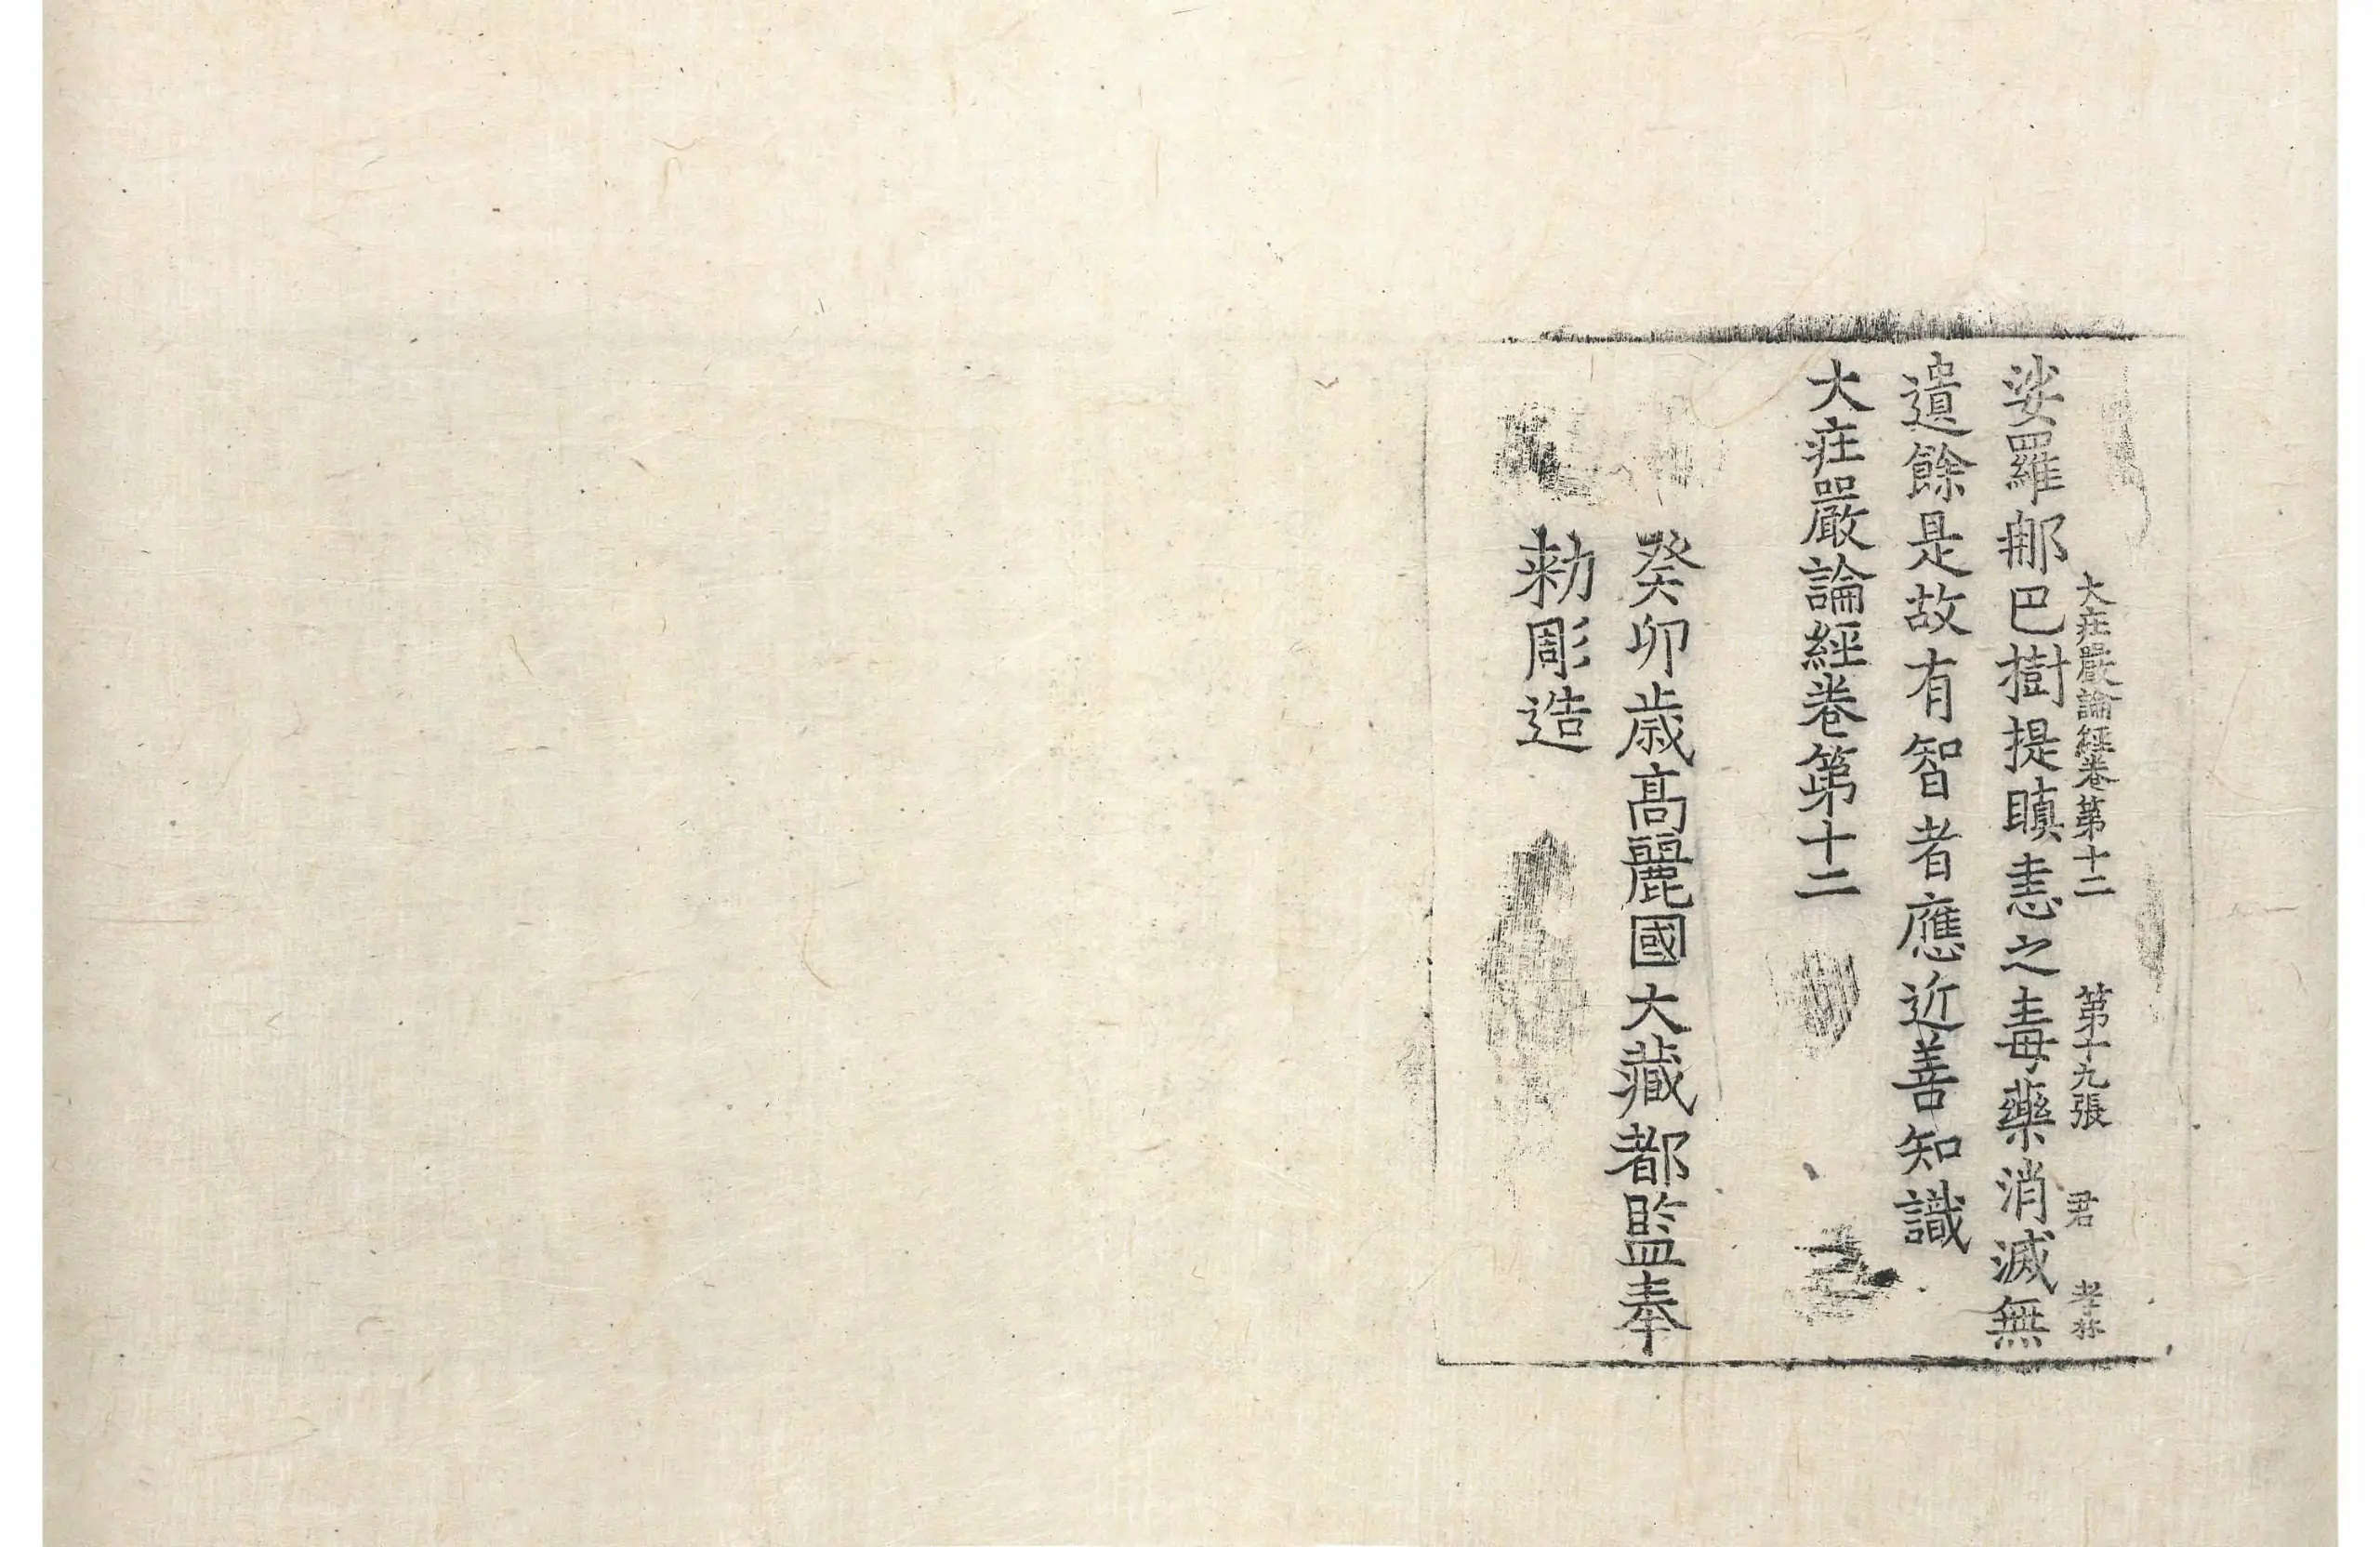 大荘嚴論經卷第十二 第十九張 君 孝林
娑羅𨚗巴樹提瞋恚之毒藥消滅無
遺餘是故有智者應近善知識
大荘嚴論經卷第十二
癸卯歲高麗國大藏都監奉
勑彫造